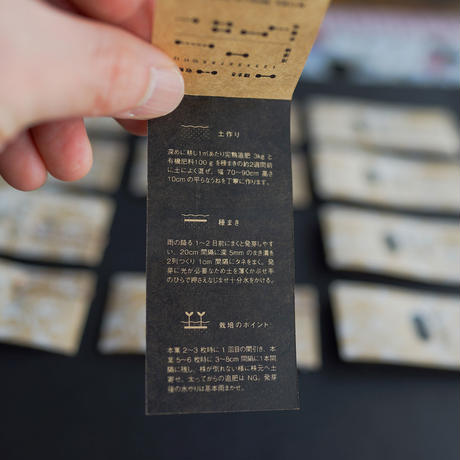 土作り
深めに耕し1㎡あたり完熟追肥 3kg と
有機肥料100gを種まきの約2週間前
に土によく混ぜ、幅 70〜90cm 高さ
10cm の平らなうねを丁寧に作ります。
種まき
雨の降る 1〜2 日前にまくと発芽しやす
い。20cm 間隔に深 5mm のまき溝を
2列つくり 1cm 間隔にタネをまく。発
芽に光が必要なため土を薄くかぶせ手
のひらで押さえなじませ十分水をかける。
栽培のポイント
本葉 2〜3 枚時に 1 回目の間引き、本
葉 5〜6 枚時に 3〜8cm 間隔に1本間
隔に残し、株が倒れない様に株元へ土
寄せ。太ってからの追肥は NG。発芽
後の水やりは基本雨まかせ。